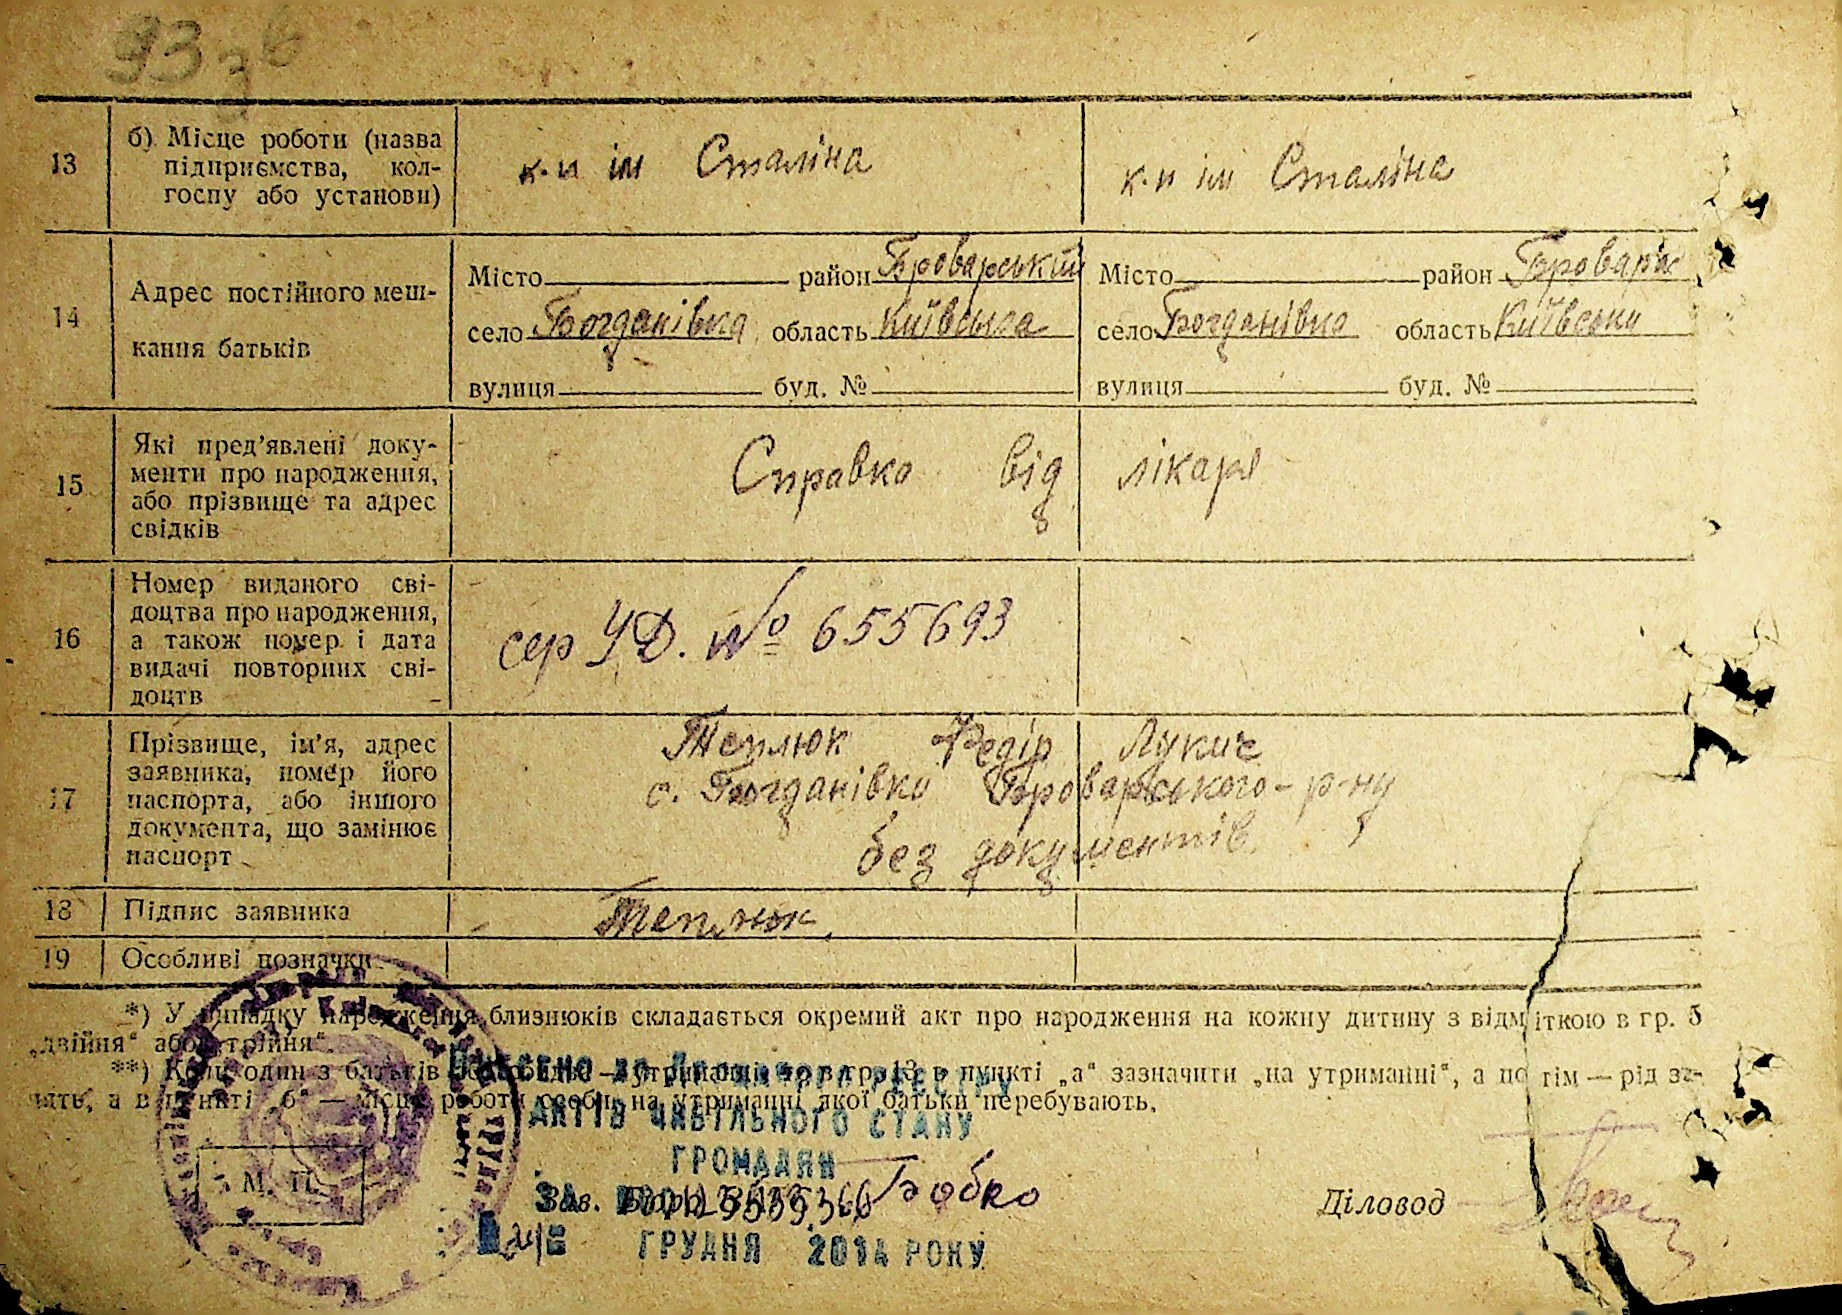 93 зв
13
б) Місце роботи (назва
підприємства, кол-
госпу або установи)
к-п ім Сталіна
к-п ім Сталіна
14
Адрес постійного меш-
кання батьків
Місто район Броварський
село Богданівка область Київська
вулиця буд. №
Місто район
село Богданівка область Київська
вулиця буд. №
15
Які пред’явлені доку-
менти про народження,
або прізвище та адрес
свідків
Справка від лікаря
16
Номер виданого сві-
доцтва про народження,
а також номер і дата
видачі повторних сві-
доцтв
сер УД. № 655693
17
Прізвище, ім’я, адрес
заявника, номер його
паспорта, або іншого
документа, що замінює
паспорт
Теплюк Федір Лукич
с. Богданівка Броварського р-ну
без документів
18
Підпис заявника
Теплюк
19
Особливі позначки
*) У випадку народження близнюків складається окремий акт про народження на кожну дитину з відміткою в гр. 5
„двійня“ або „трійня“.
**) Коли один з батьків утриманні, то в гр. 13 в пункті „а“ зазначити „на утриманні“, а потім — рід за-
нять, а в пункті „б“ — місце роботи особи, на утриманні якої батьки перебувають.
Внесено до Державного реєстру
актів цивільного стану
громадян
за №
ГРУДНЯ 2014 РОКУ
М. П.
Зав. Бюро Бобко
Діловод